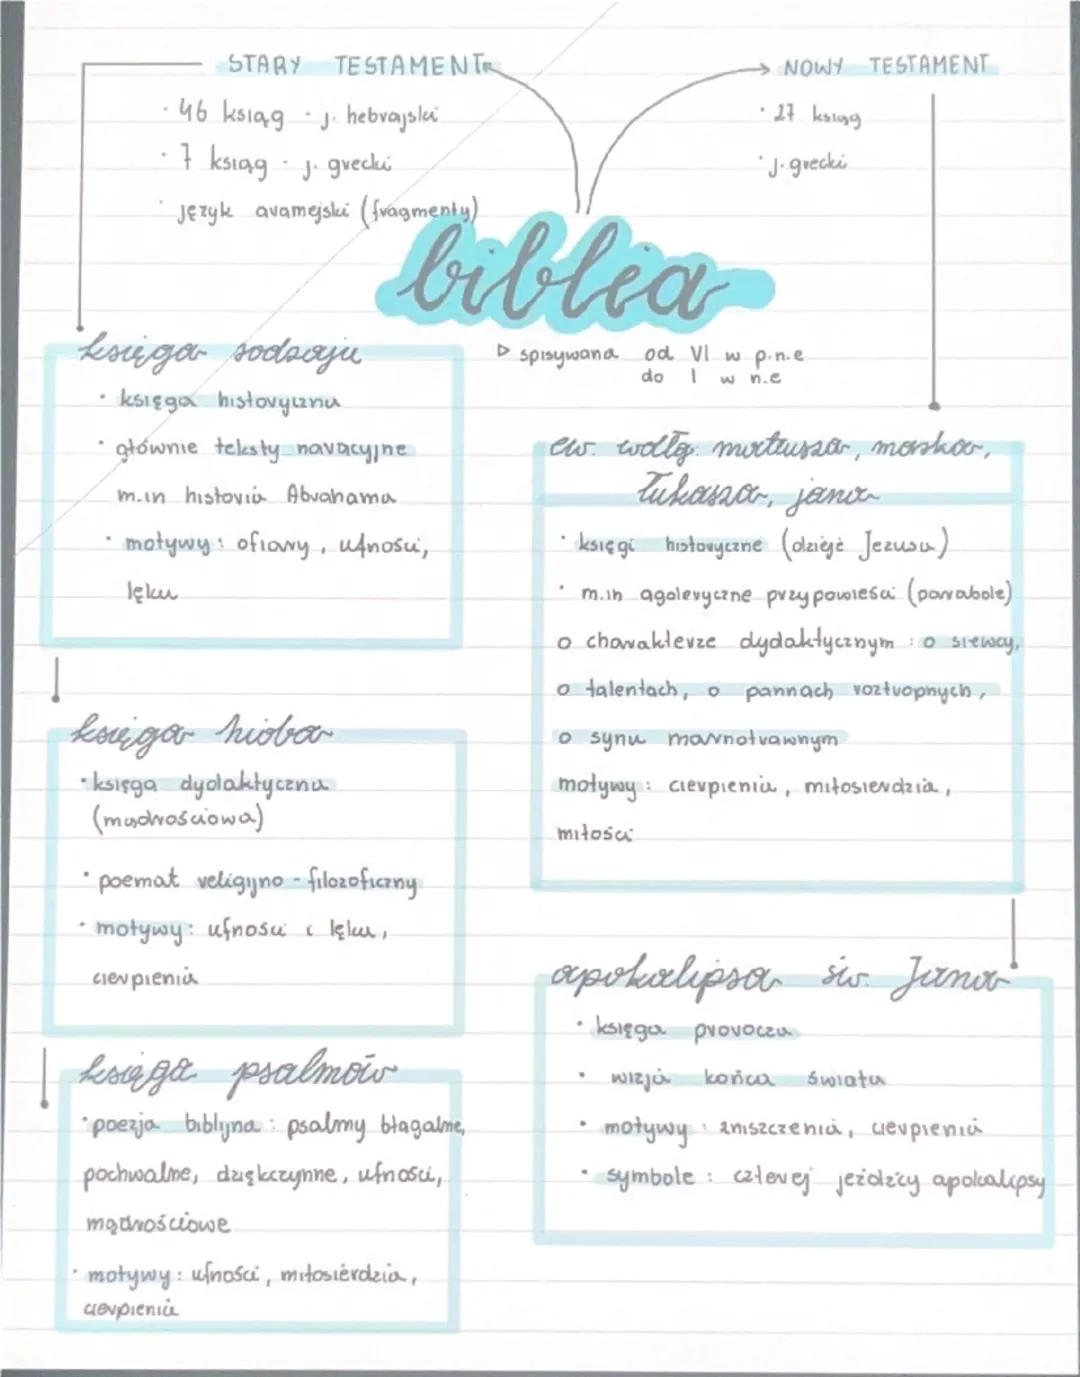 STARY TESTAMENT
· 46 ksiąg - j. hebrajski
· 7 ksiąg - j. grecki
· język aramejski (fragmenty)
NOWY TESTAMENT
· 27 ksiąg
· j. grecki
biblia
▷ spisywana od VI w p.n.e
do I w n.e
księga rodzaju
· księga historyczna
· głównie teksty narracyjne
m.in historia Abrahama
· motywy: ofiary, ufności,
lęku
księga hioba
· księga dydaktyczna
(mądrościowa)
· poemat religijno - filozoficzny
· motywy: ufności i lęku,
cierpienia
księga psalmów
· poezja biblijna: psalmy błagalne,
pochwalne, dziękczynne, ufności,
mądrościowe
· motywy: ufności, miłosierdzia,
cierpienia
ew. wdłg. mateusza, marka,
łukasza, jana
· księgi historyczne (dzieje Jezusa)
· m.in agoleryczne przypowieści (parabole)
o charakterze dydaktycznym: o siewcy,
o talentach, o pannach roztropnych,
o synu marnotrawnym
motywy: cierpienia, miłosierdzia,
miłości
apokalipsa św. Jana
· księga prorocza
· wizja końca świata
· motywy: zniszczenia, cierpienia
· symbole: czterej jeźdźcy apokalipsy